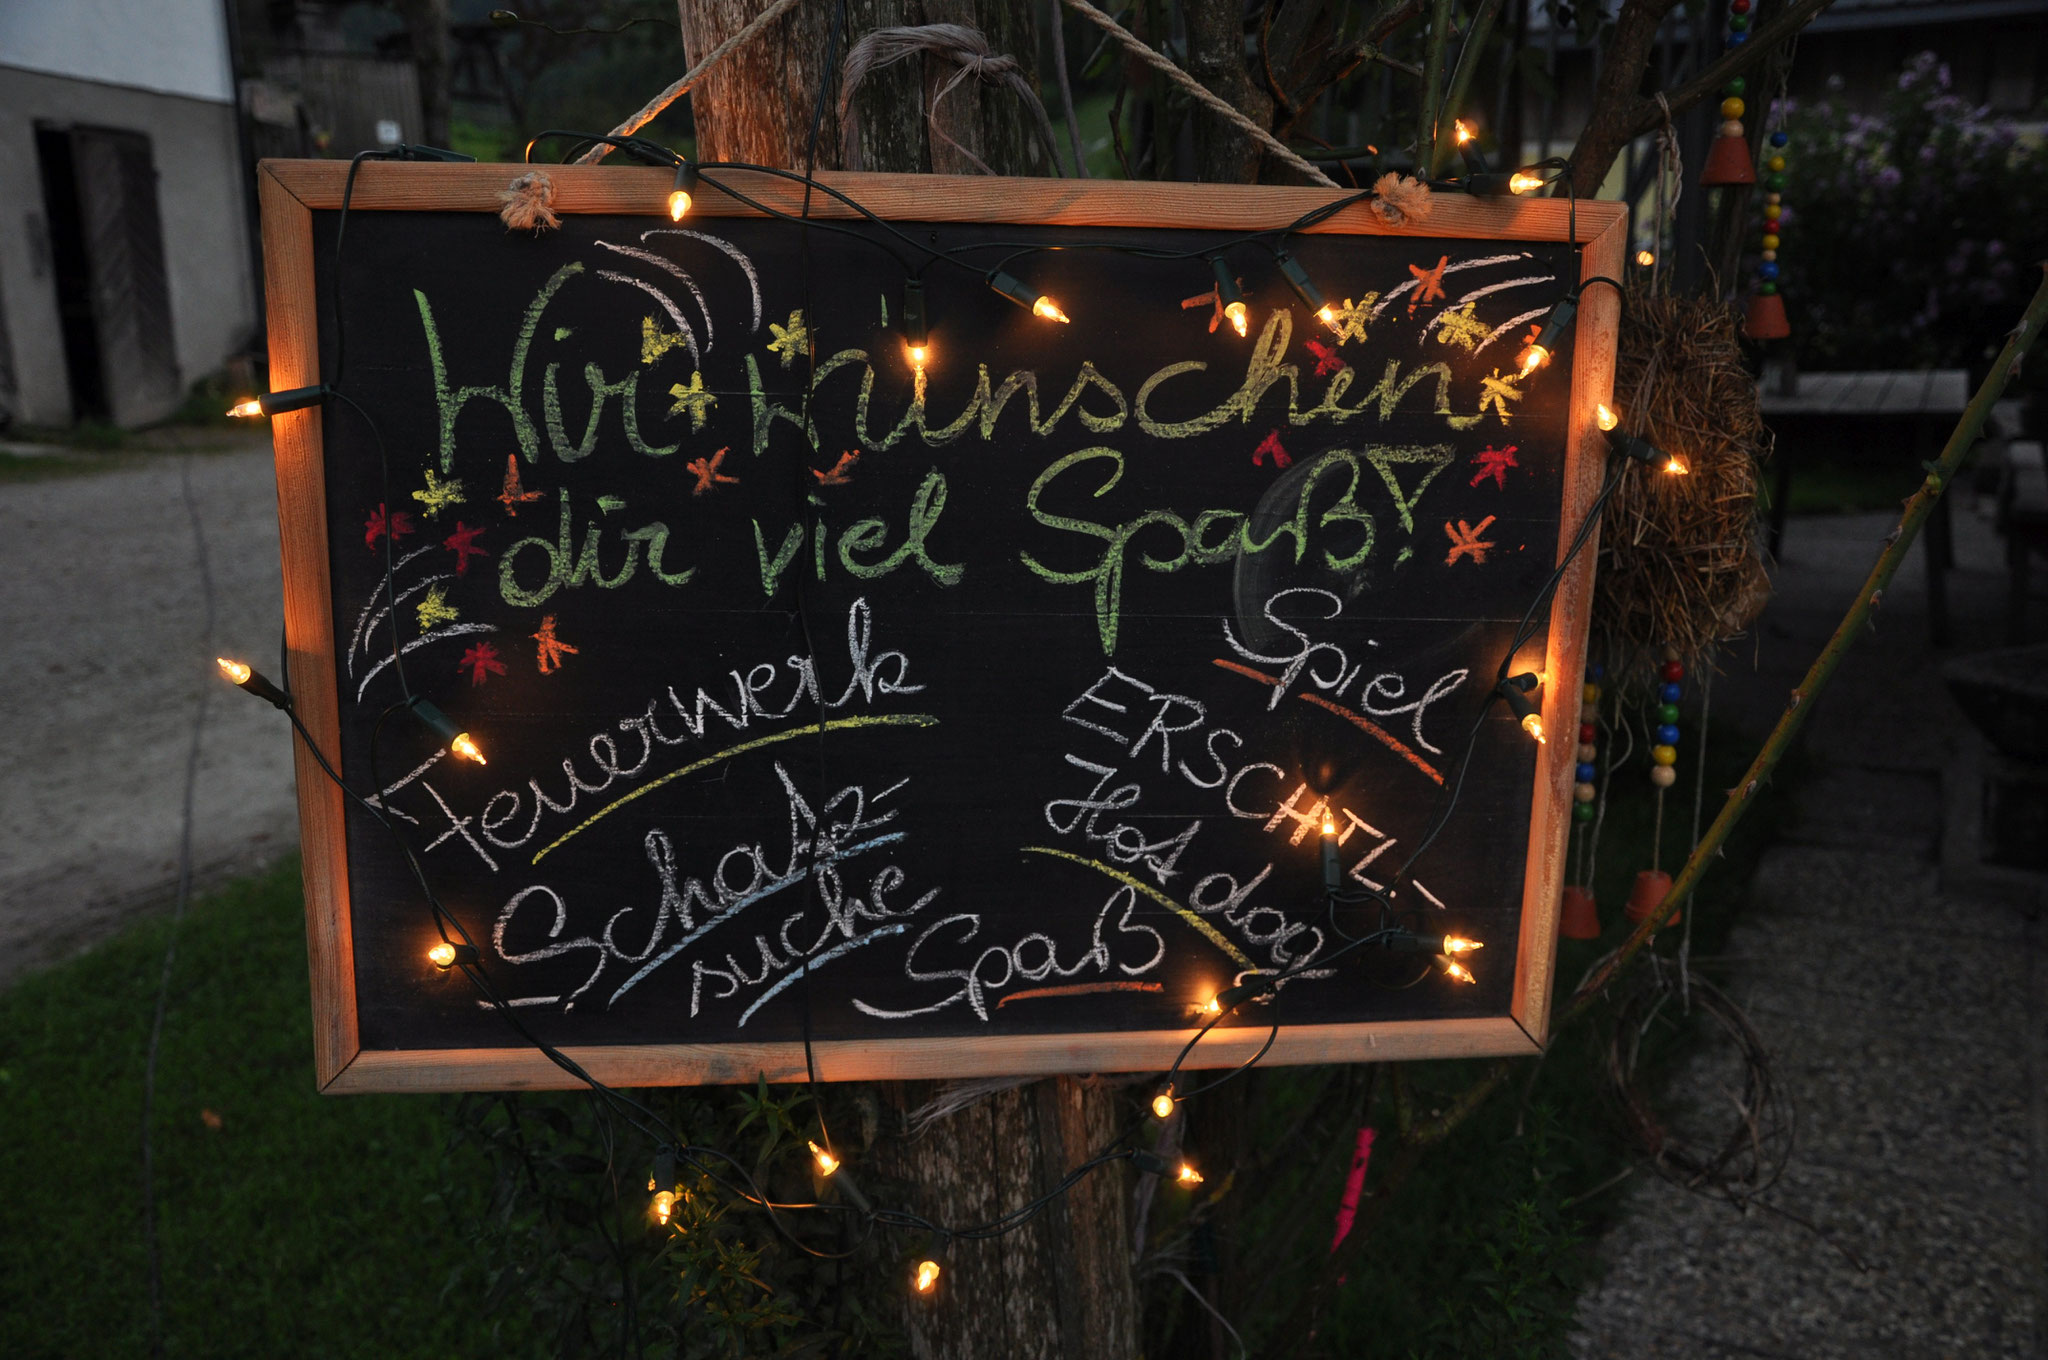 Wir wünschen
dir viel Spaß!
Feuerwerk
Schatz-
suche
Spaß
Spiel
ERSCHTL-
Hot dog